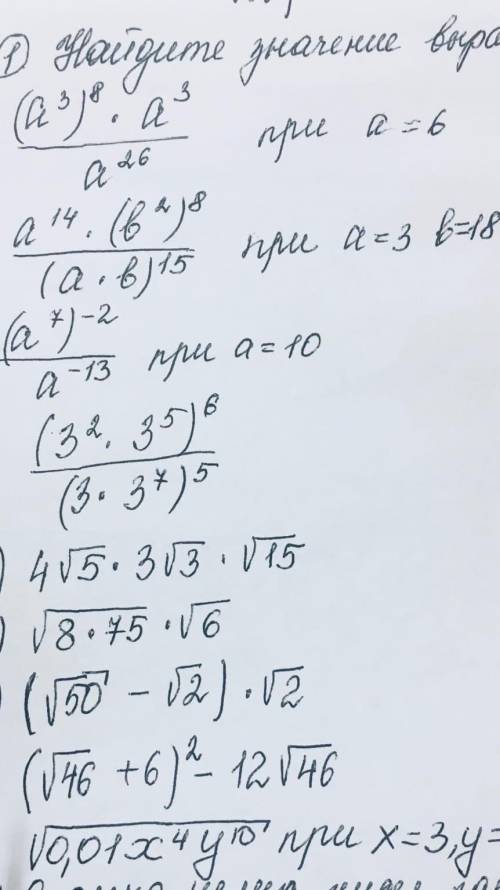 1 Найдите значение выра
(a³)⁸ · a³ / a²⁶ при a = 6
a¹⁴ · (в²)⁸ / (a · в)¹⁵ при a = 3 в = 18
(a⁷)⁻² / a⁻¹³ при a = 10
(3² · 3⁵)⁶ / (3 · 3⁷)⁵
) 4√5 · 3√3 · √15
) √(8 · 75) · √6
) (√50 − √2) · √2
(√46 + 6)² − 12√46
√(0,01x⁴y¹⁰) при x = 3, y =